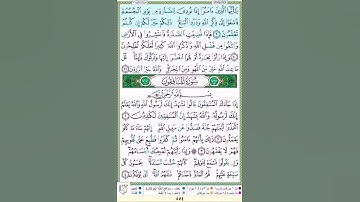 يَٰٓأَيُّهَا ٱلَّذِينَ ءَامَنُوٓا۟ إِذَا نُودِيَ لِلصَّلَوٰةِ مِن يَوْمِ ٱلْجُمُعَةِ
فَٱسْعَوْا۟ إِلَىٰ ذِكْرِ ٱللَّهِ وَذَرُوا۟ ٱلْبَيْعَ ذَٰلِكُمْ خَيْرٌ لَّكُمْ إِن كُنتُمْ
تَعْلَمُونَ ٩ فَإِذَا قُضِيَتِ ٱلصَّلَوٰةُ فَٱنتَشِرُوا۟ فِى ٱلْأَرْضِ
وَٱبْتَغُوا۟ مِن فَضْلِ ٱللَّهِ وَٱذْكُرُوا۟ ٱللَّهَ كَثِيرًا لَّعَلَّكُمْ تُفْلِحُونَ
١٠ وَإِذَا رَأَوْا۟ تِجَٰرَةً أَوْ لَهْوًا ٱنفَضُّوٓا۟ إِلَيْهَا وَتَرَكُوكَ قَآئِمًا قُلْ
مَا عِندَ ٱللَّهِ خَيْرٌ مِّنَ ٱللَّهْوِ وَمِنَ ٱلتِّجَٰرَةِ وَٱللَّهُ خَيْرُ ٱلرَّٰزِقِينَ ١١
سُورَةُ المُنَافِقُونَ
بِسْمِ ٱللَّهِ ٱلرَّحْمَٰنِ ٱلرَّحِيمِ
إِذَا جَآءَكَ ٱلْمُنَٰفِقُونَ قَالُوا۟ نَشْهَدُ إِنَّكَ لَرَسُولُ ٱللَّهِ وَٱللَّهُ يَعْلَمُ
إِنَّكَ لَرَسُولُهُۥ وَٱللَّهُ يَشْهَدُ إِنَّ ٱلْمُنَٰفِقِينَ لَكَٰذِبُونَ ١
ٱتَّخَذُوٓا۟ أَيْمَٰنَهُمْ جُنَّةً فَصَدُّوا۟ عَن سَبِيلِ ٱللَّهِ إِنَّهُمْ سَآءَ مَا كَانُوا۟
يَعْمَلُونَ ٢ ذَٰلِكَ بِأَنَّهُمْ ءَامَنُوا۟ ثُمَّ كَفَرُوا۟ فَطُبِعَ عَلَىٰ قُلُوبِهِمْ
فَهُمْ لَا يَفْقَهُونَ ٣ وَإِذَا رَأَيْتَهُمْ تُعْجِبُكَ أَجْسَامُهُمْ
وَإِن يَقُولُوا۟ تَسْمَعْ لِقَوْلِهِمْ كَأَنَّهُمْ خُشُبٌ مُّسَنَّدَةٌ يَحْسَبُونَ
كُلَّ صَيْحَةٍ عَلَيْهِمْ هُمُ ٱلْعَدُوُّ فَٱحْذَرْهُمْ قَٰتَلَهُمُ ٱللَّهُ أَنَّىٰ يُؤْفَكُونَ ٤